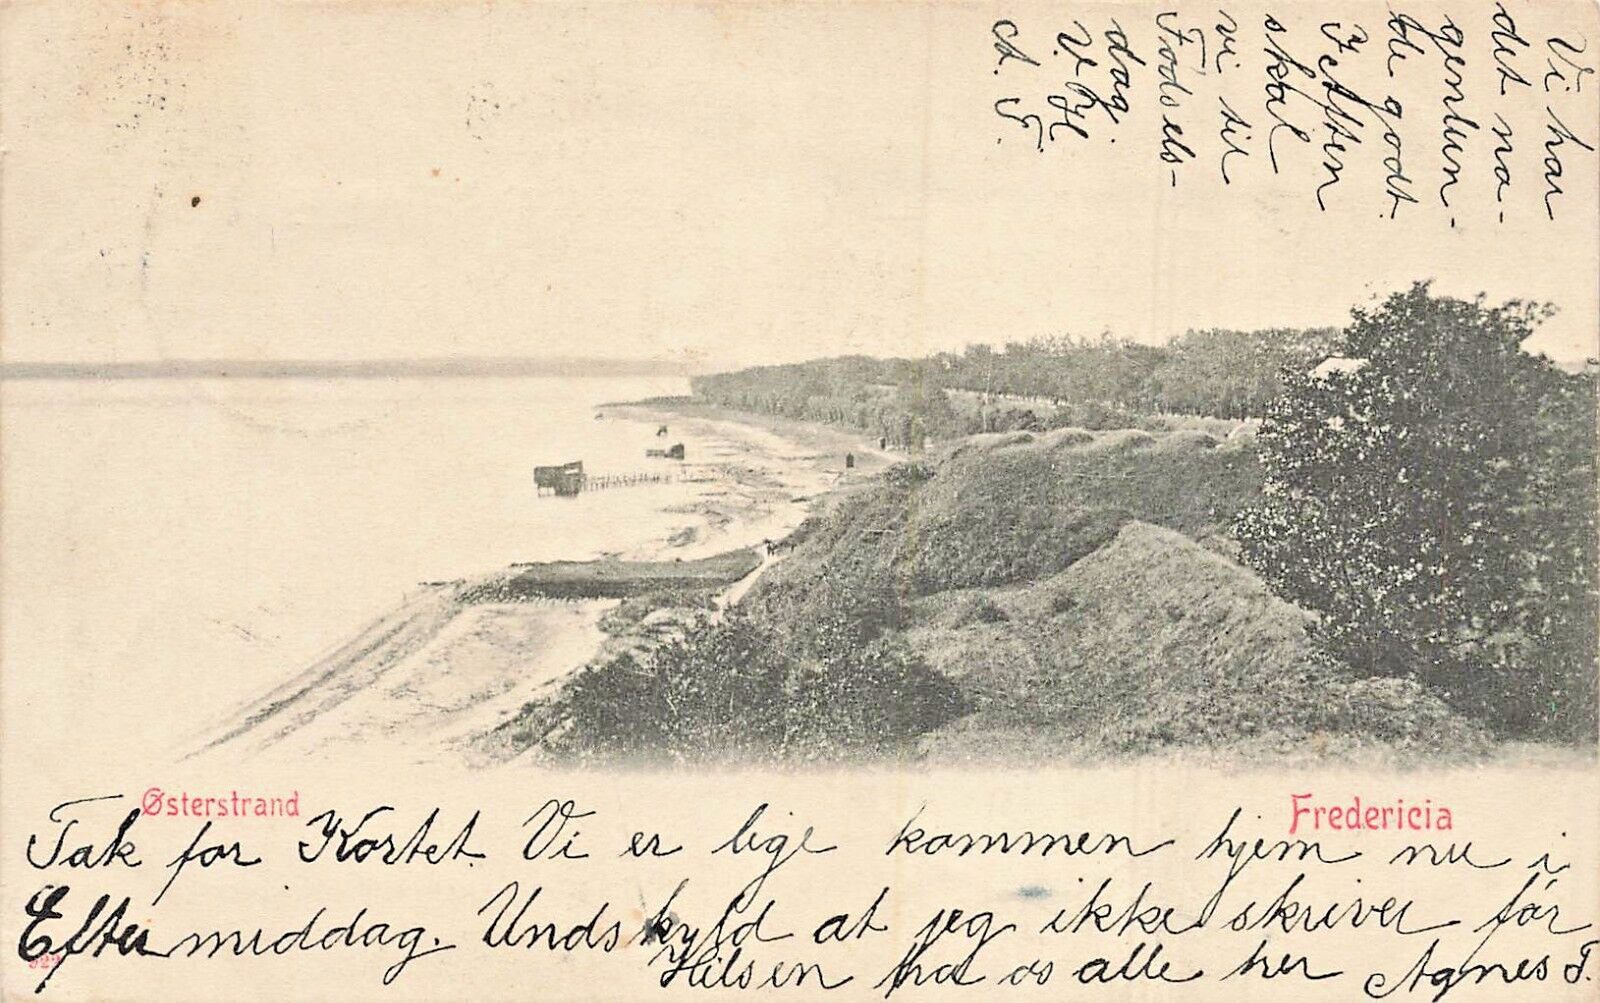 Vi har
det na-
gendun-
de godt.
I Aften
skal
vi til
Fødsels-
dag.
V. H
A. T.
Østerstrand
Fredericia
Tak for Kortet. Vi er lige kommen hjem nu i
Eftermiddag. Undskyld at jeg ikke skriver før
Hilsen fra os alle her Agnes T.
922